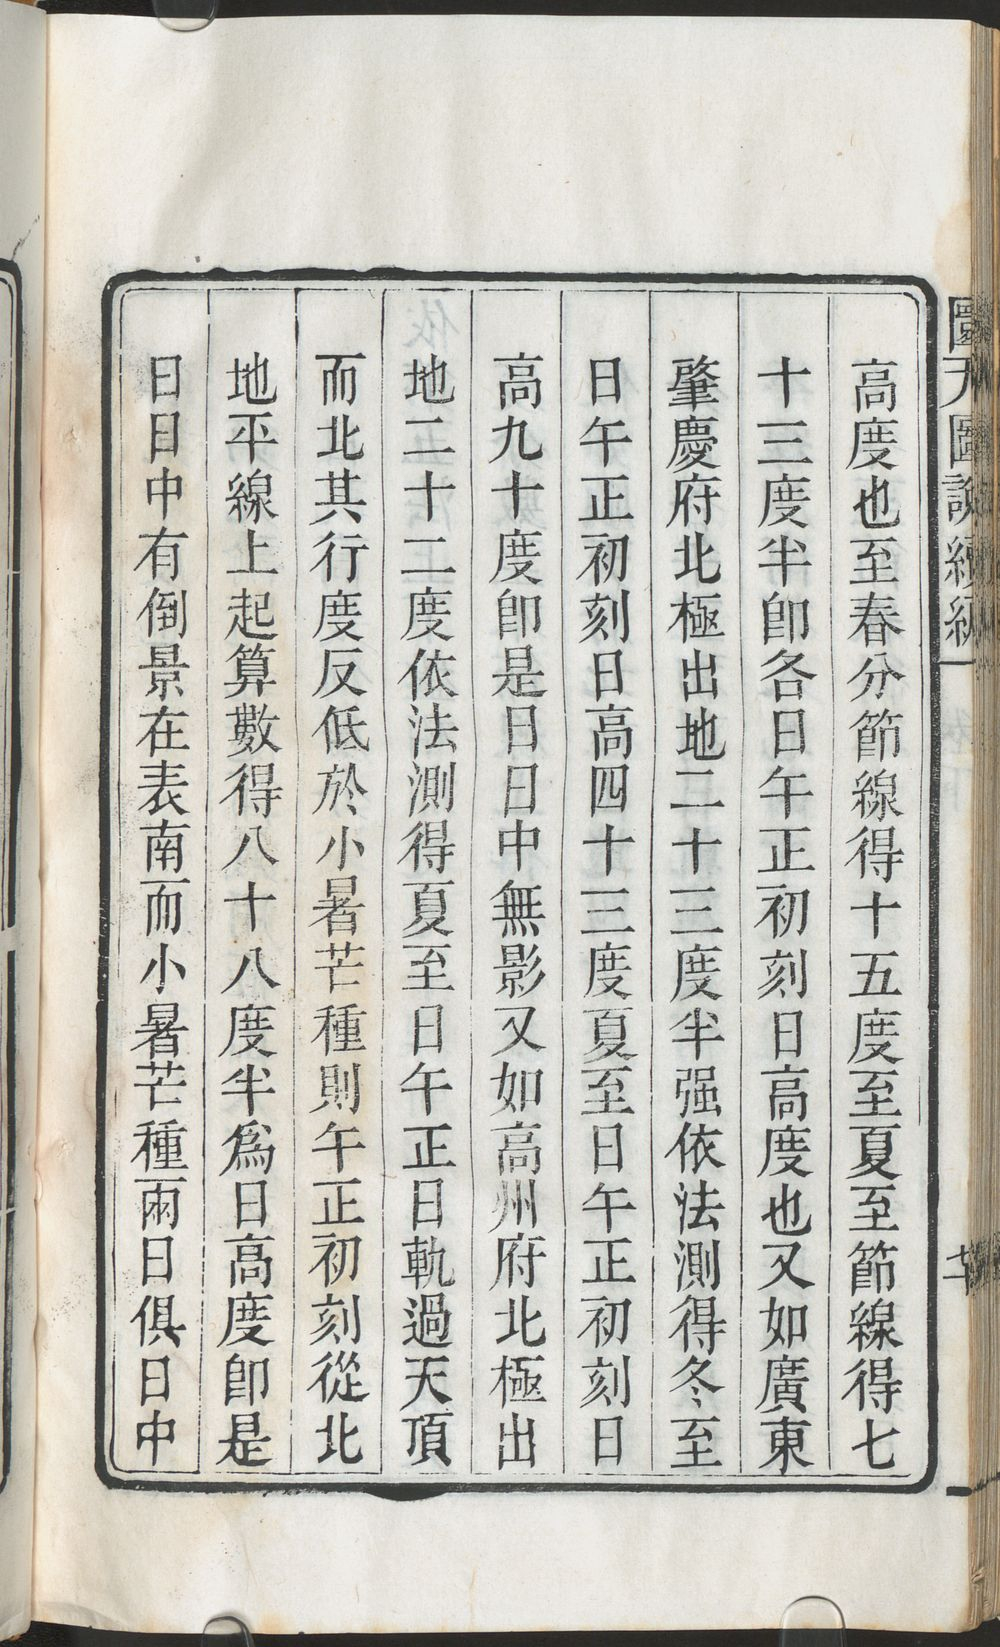 高度也至春分節線得十五度至夏至節線得七
十三度半卽各日午正初刻日高度也又如廣東
肇慶府北極出地二十三度半强依法測得冬至
日午正初刻日高四十三度夏至日午正初刻日
高九十度卽是日日中無影又如高州府北極出
地二十二度依法測得夏至日午正日軌過天頂
而北其行度反低於小暑芒種則午正初刻從北
地平線上起算數得八十八度半爲日高度卽是
日日中有倒景在表南而小暑芒種兩日俱日中